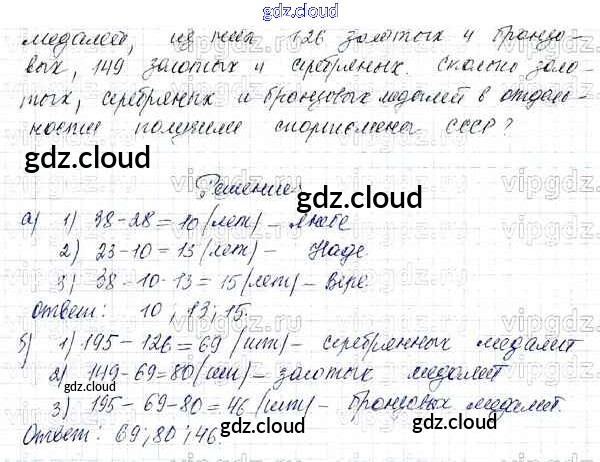 gdz.cloud
медалей, из них 126 золотых и бронзо-
вых, 149 золотых и серебряных. Сколько золо-
тых, серебряных и бронзовых медалей в отдель-
ности получили спортсмены СССР?
gdz.cloud gdz.cloud
Решение:
а) 1) 38-28=10 (лет) - Любе
2) 23-10=13 (лет) - Наде
3) 38-10-13=15 (лет) - Вере
Ответ: 10; 13; 15.
gdz.cloud gdz.cloud
б) 1) 195-126=69 (шт) - серебрянных медалей
2) 149-69=80 (шт) - золотых медалей
gdz.cloud gdz.cloud
3) 195-69-80=46 (шт) - бронзовых медалей.
Ответ: 69; 80; 46.
gdz.cloud gdz.cloud